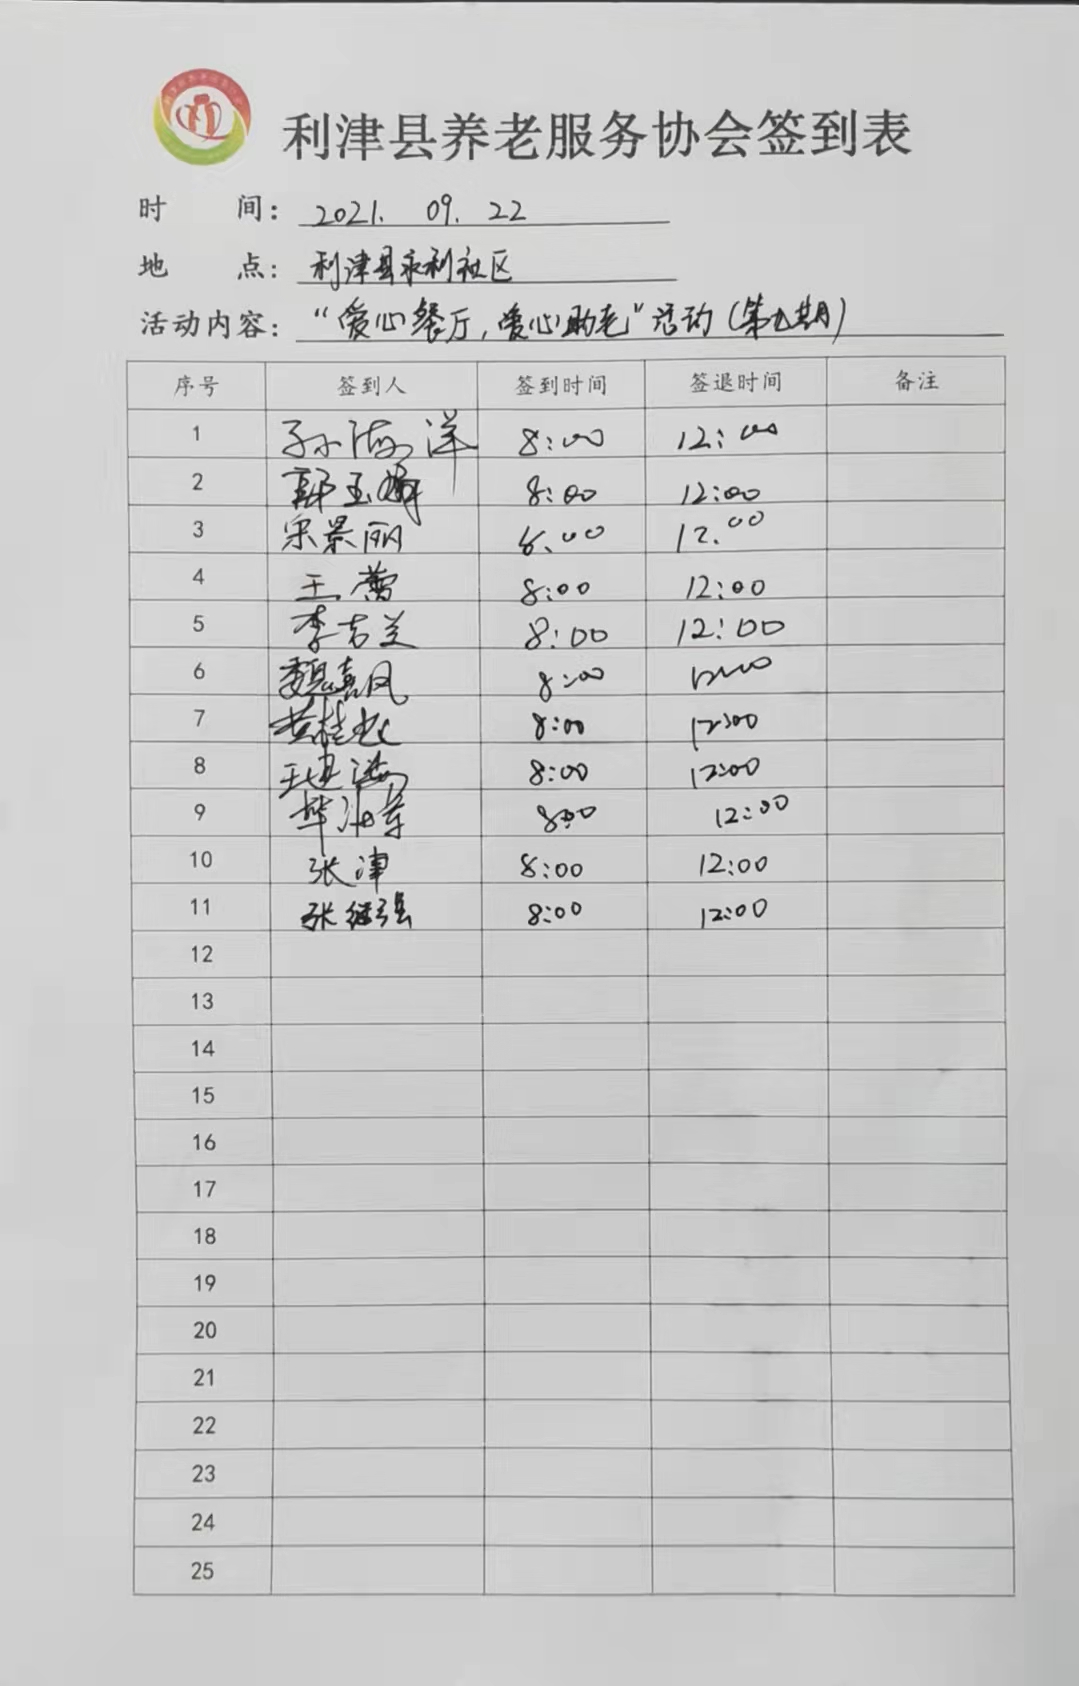 利津县养老服务协会签到表
时 间： 2021. 09. 22
地 点： 利津县永利社区
活动内容： “爱心餐厅，爱心助老”活动（第九期）
序号 签到人 签到时间 签退时间 备注
1 孙海洋 8:00 12:00
2 郭玉婷 8:00 12:00
3 宋景丽 8:00 12:00
4 王蕾 8:00 12:00
5 李吉兰 8:00 12:00
6 魏嘉凤 8:00 12:00
7 黄桂 8:00 12:00
8 王建 8:00 12:00
9 8:00 12:00
10 张津 8:00 12:00
11 张继强 8:00 12:00
12
13
14
15
16
17
18
19
20
21
22
23
24
25